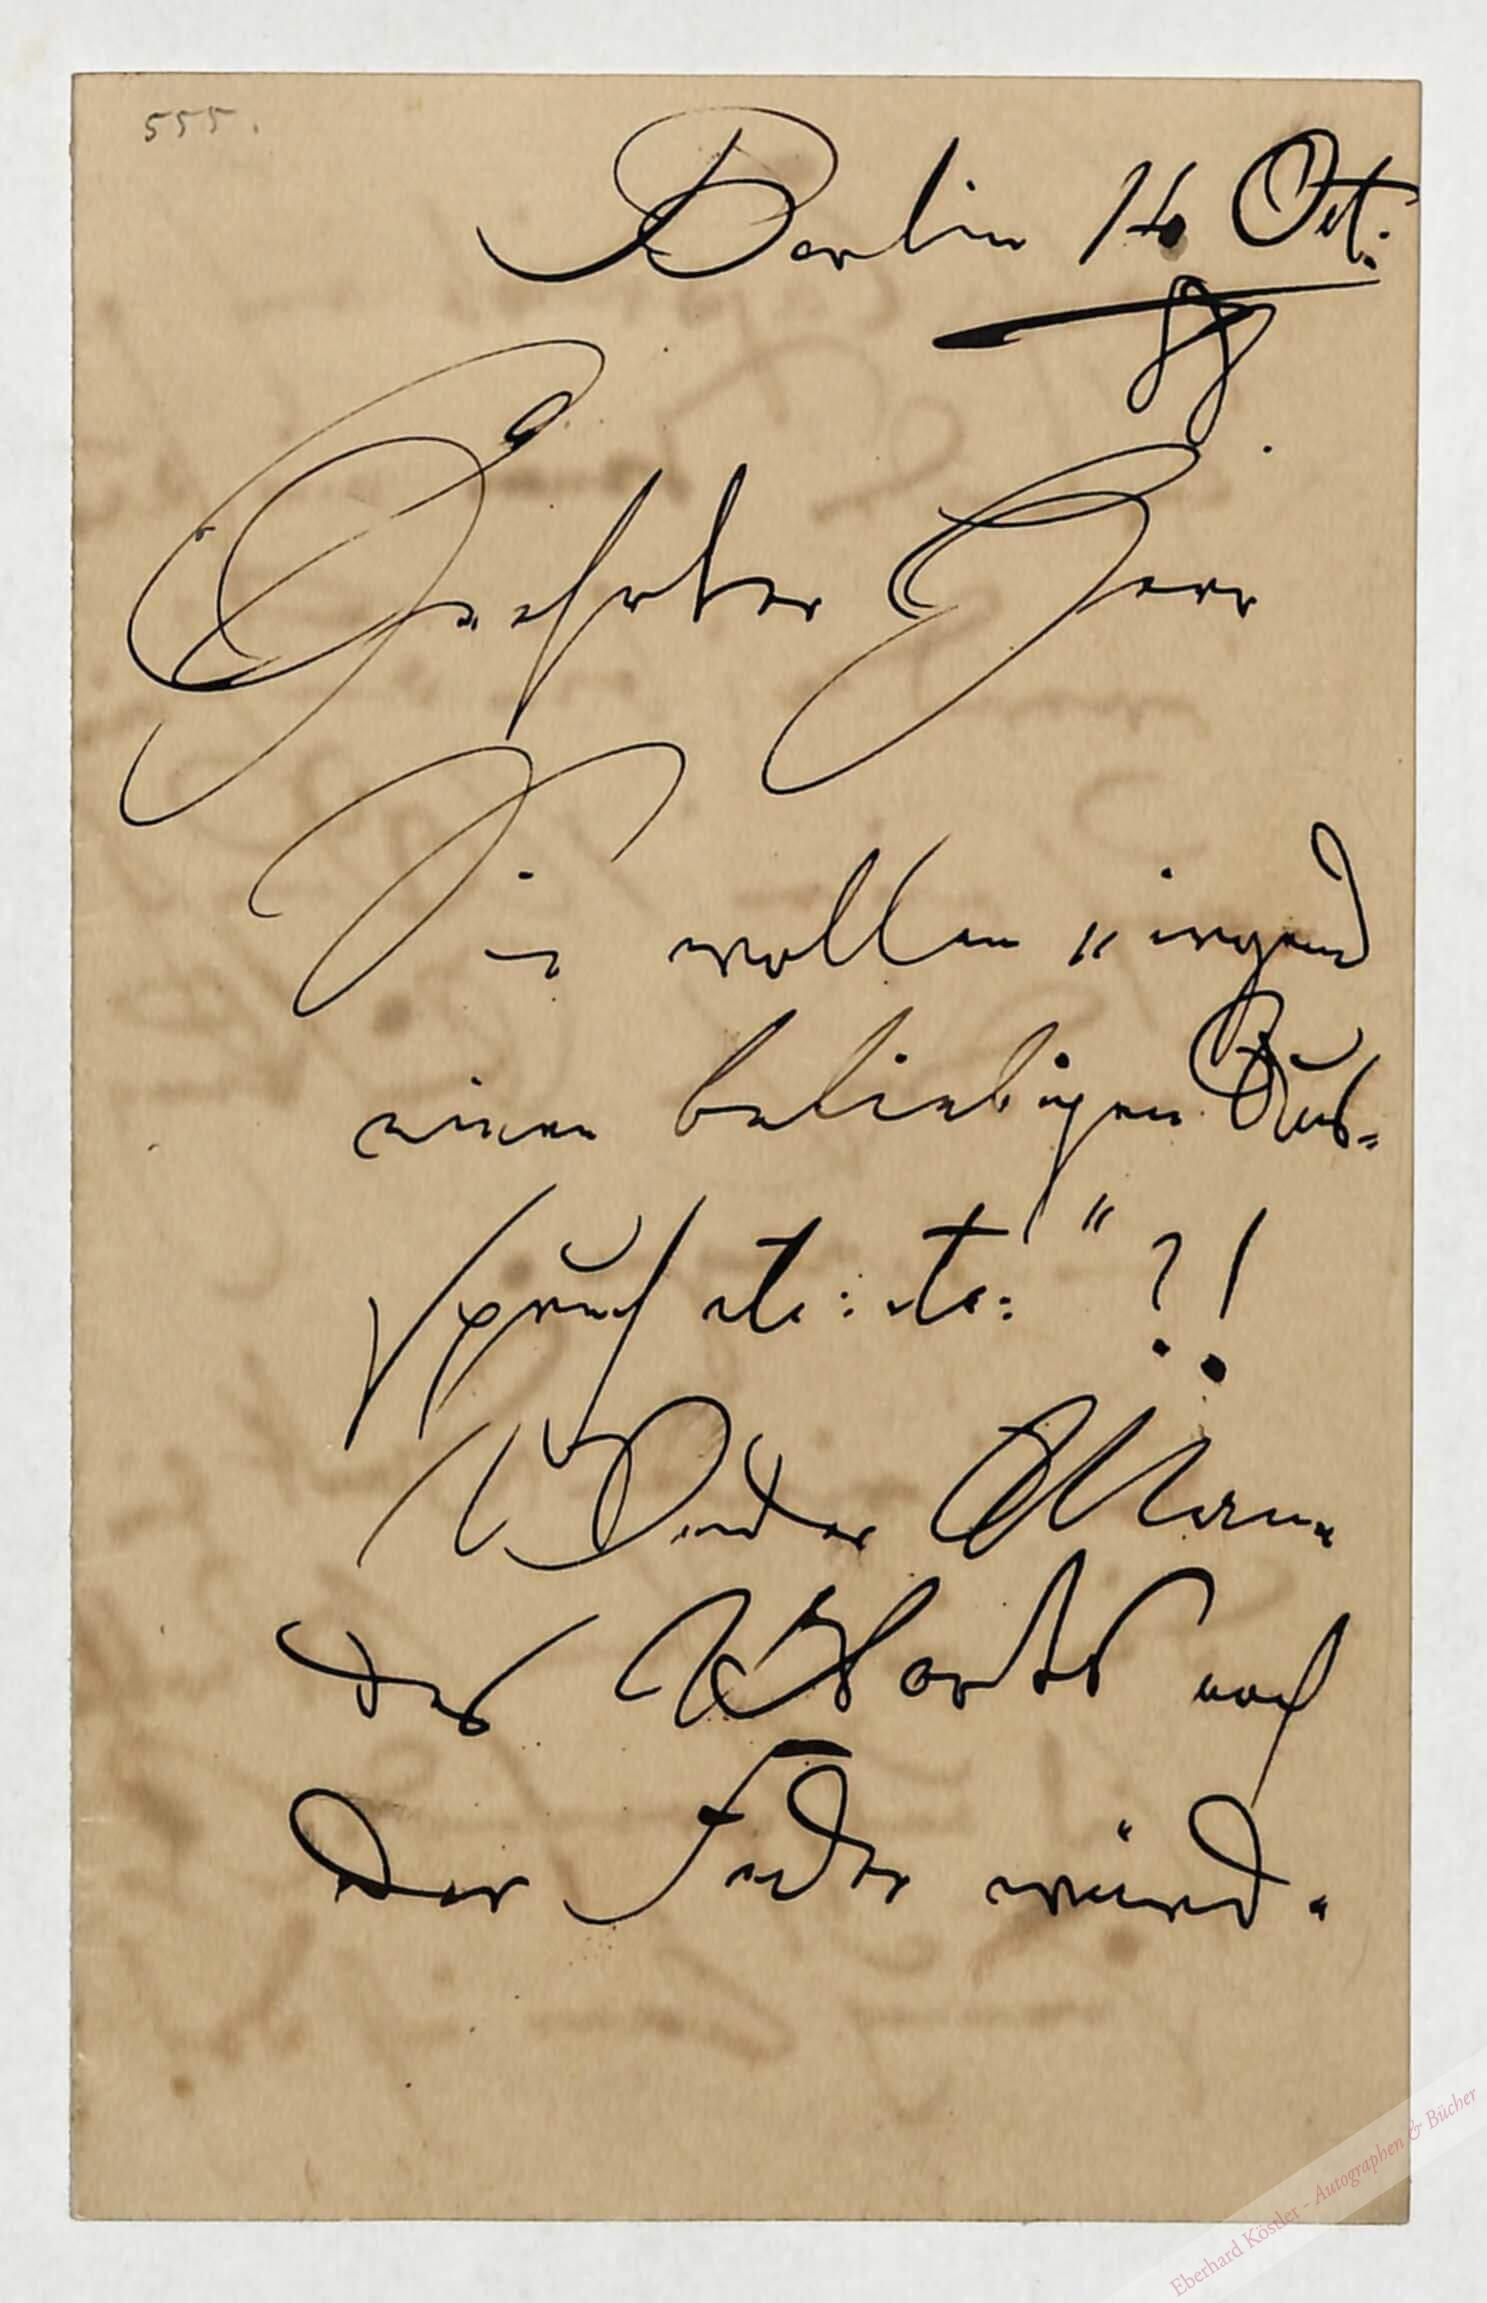 555.
Berlin 16 Oct:
88
Geehrter Herr
Sie wollen „irgend
einen beliebigen Aus=
spruch etc: etc:" ?!
Weder Mann
des Worts noch
der Feder würd.
Eberhard Köstler - Autographen & Bücher